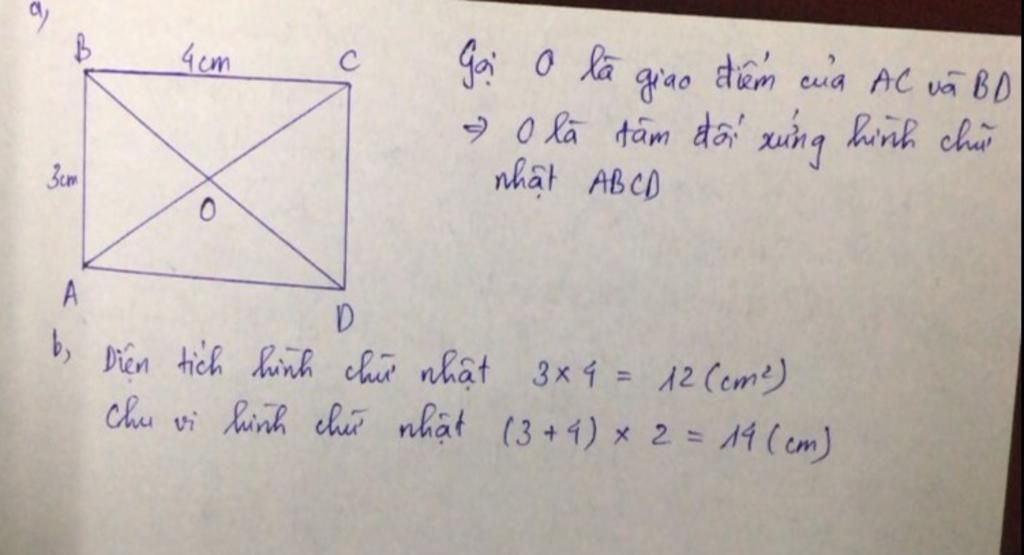 a,
B 4cm C
Gọi O là giao điểm của AC và BD
⇒ O là tâm đối xứng hình chữ
nhật ABCD
3cm
O
A
D
b, Diện tích hình chữ nhật 3 × 4 = 12 (cm²)
Chu vi hình chữ nhật (3 + 4) × 2 = 14 (cm)